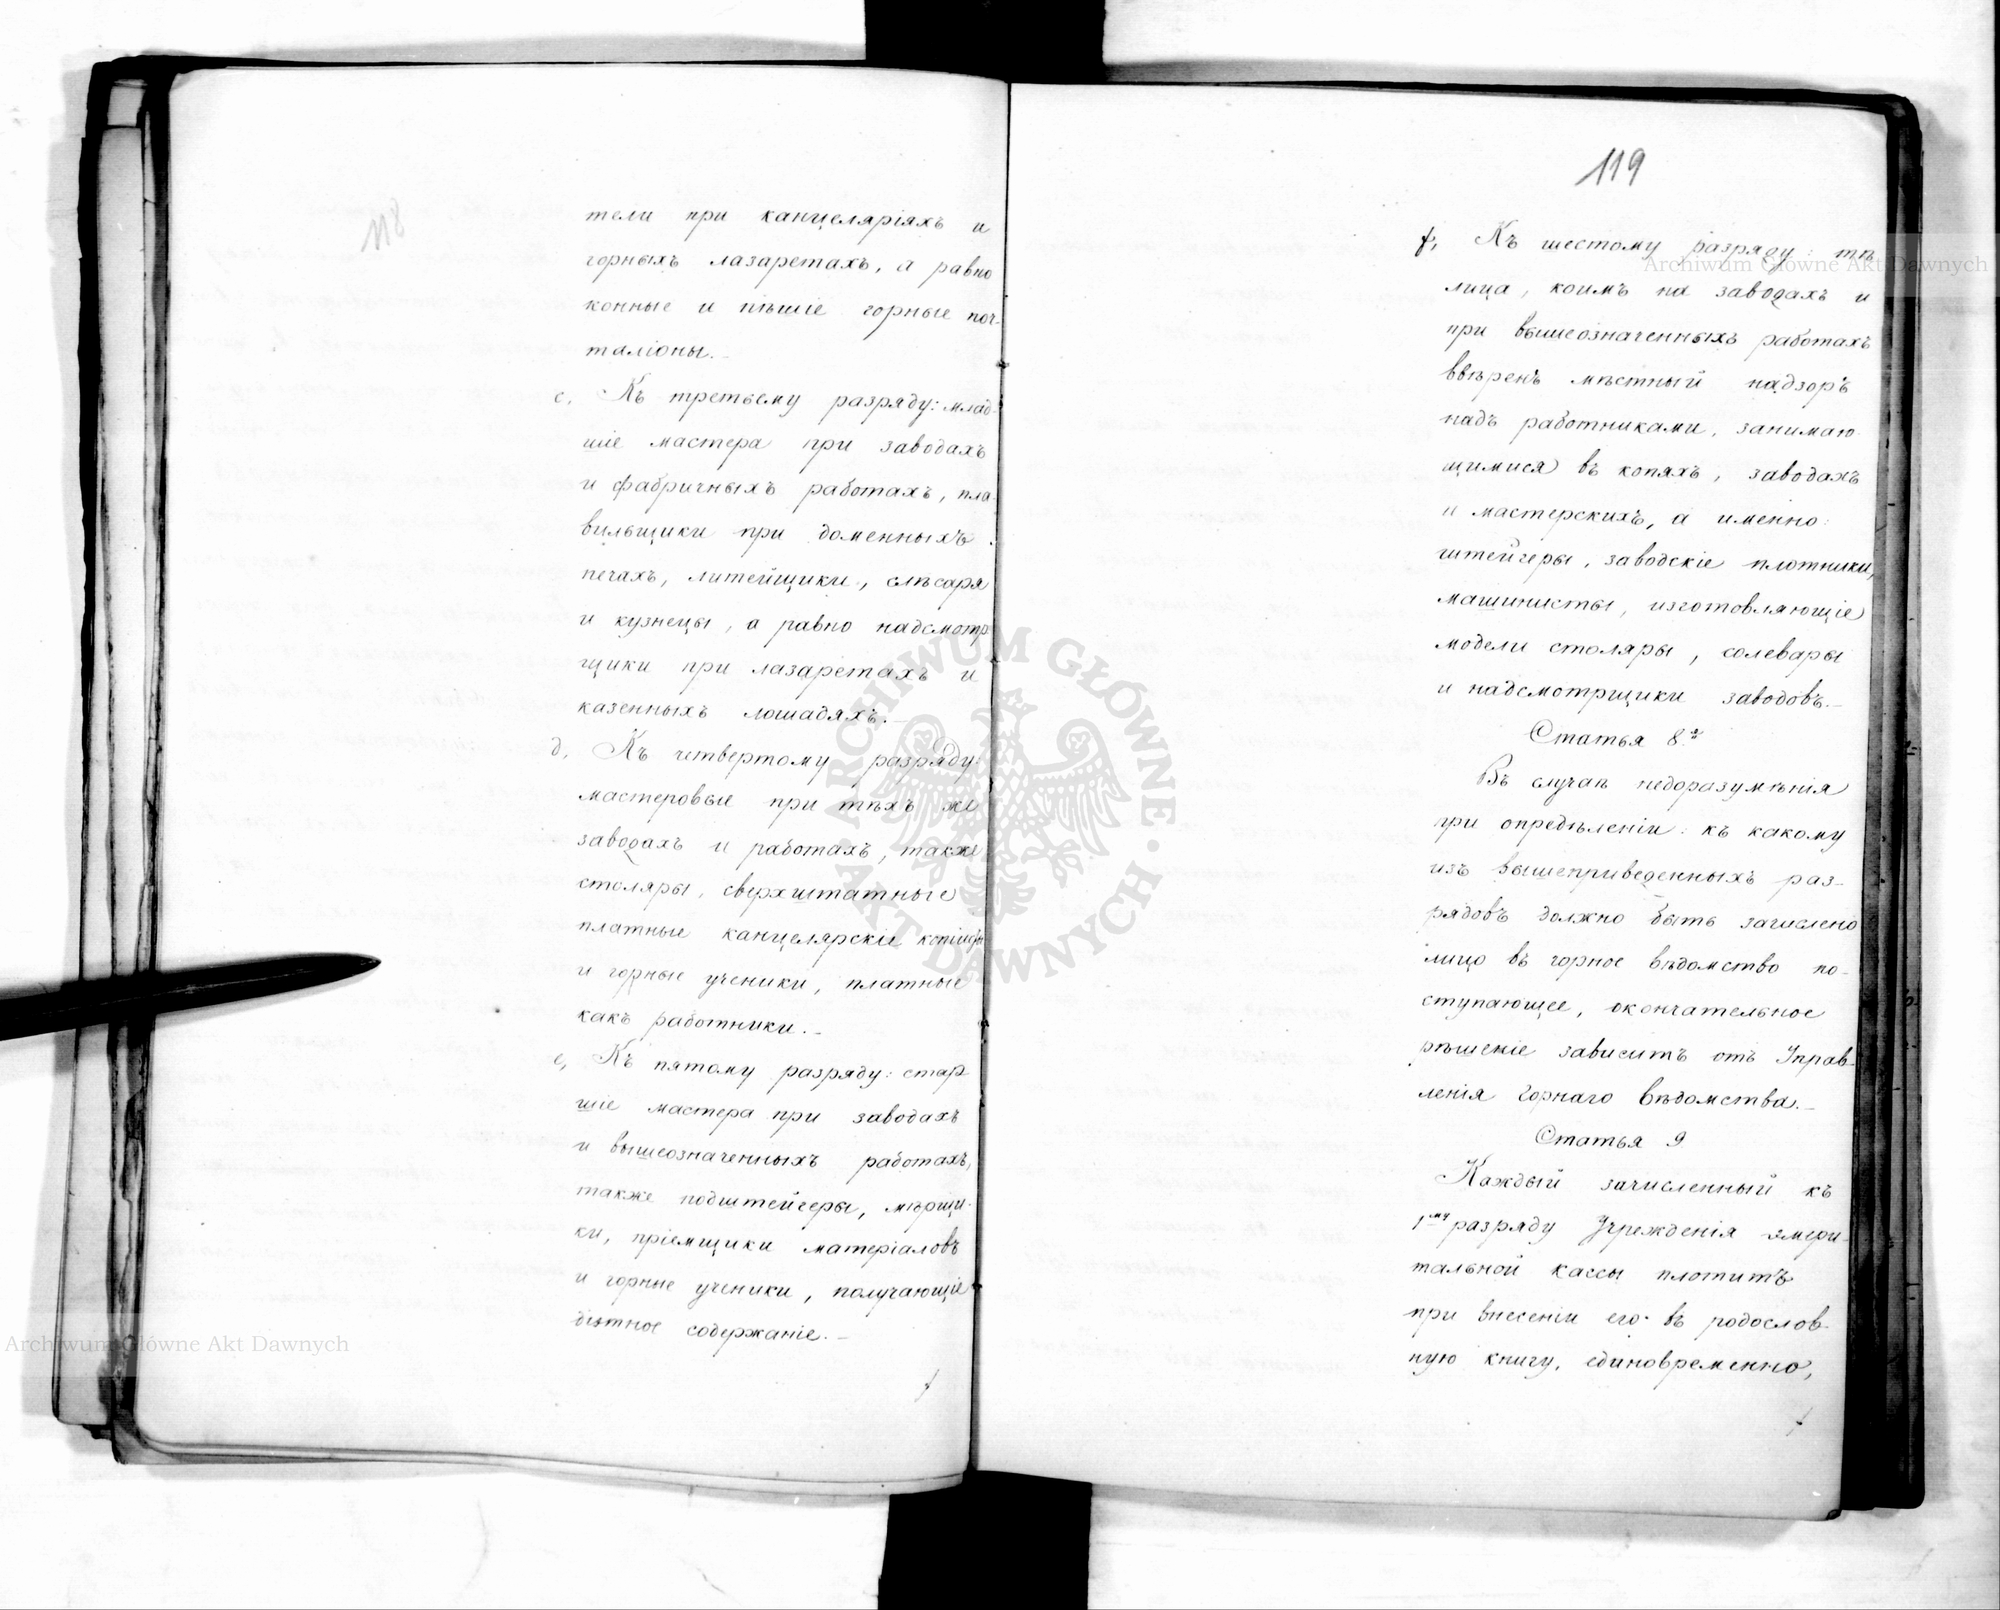 118
тели при канцеляріяхъ и
горныхъ лазаретахъ, а равно
конные и пѣшіе горные поч-
таліоны.
с, Къ третьему разряду: млад-
шіе мастера при заводахъ
и фабричныхъ работахъ, пла-
вильщики при доменныхъ
печахъ, литейщики, слѣсаря
и кузнецы, а равно надсмотр-
щики при лазаретахъ и
казенныхъ лошадяхъ.
д, Къ четвертому разряду:
мастеровые при тѣхъ же
заводахъ и работахъ, также
столяры, сверхштатные
платные канцелярскіе
и горные ученики, платные
какъ работники.
е, Къ пятому разряду: стар-
шіе мастера при заводахъ
и вышеозначенныхъ работахъ,
также подштейгеры, мѣрщи-
ки, пріемщики матеріаловъ
и горные ученики, получающіе
діэтное содержаніе.
119
f, Къ шестому разряду: тѣ
лица, коимъ на заводахъ и
при вышеозначенныхъ работахъ
ввѣренъ мѣстный надзоръ
надъ работниками, занимаю-
щимися въ копяхъ, заводахъ
и мастерскихъ, а именно:
штейгеры, заводскіе плотники,
машинисты, изготовляющіе
модели столяры, солевары
и надсмотрщики заводовъ.
Статья 8.я
Въ случаѣ недоразумѣнія
при опредѣленіи: къ какому
изъ вышеприведенныхъ раз-
рядовъ должно быть зачислено
лицо въ горное вѣдомство по-
ступающее, окончательное
рѣшеніе зависитъ отъ Управ-
ленія Горнаго вѣдомства.
Статья 9
Каждый зачисленный къ
1му разряду Учрежденія эмери-
тальной кассы плотитъ
при внесеніи его въ родослов-
ную книгу, единовременно,
ARCHIWUM GŁÓWNE AKT DAWNYCH
Archiwum Główne Akt Dawnych
Archiwum Główne Akt Dawnych